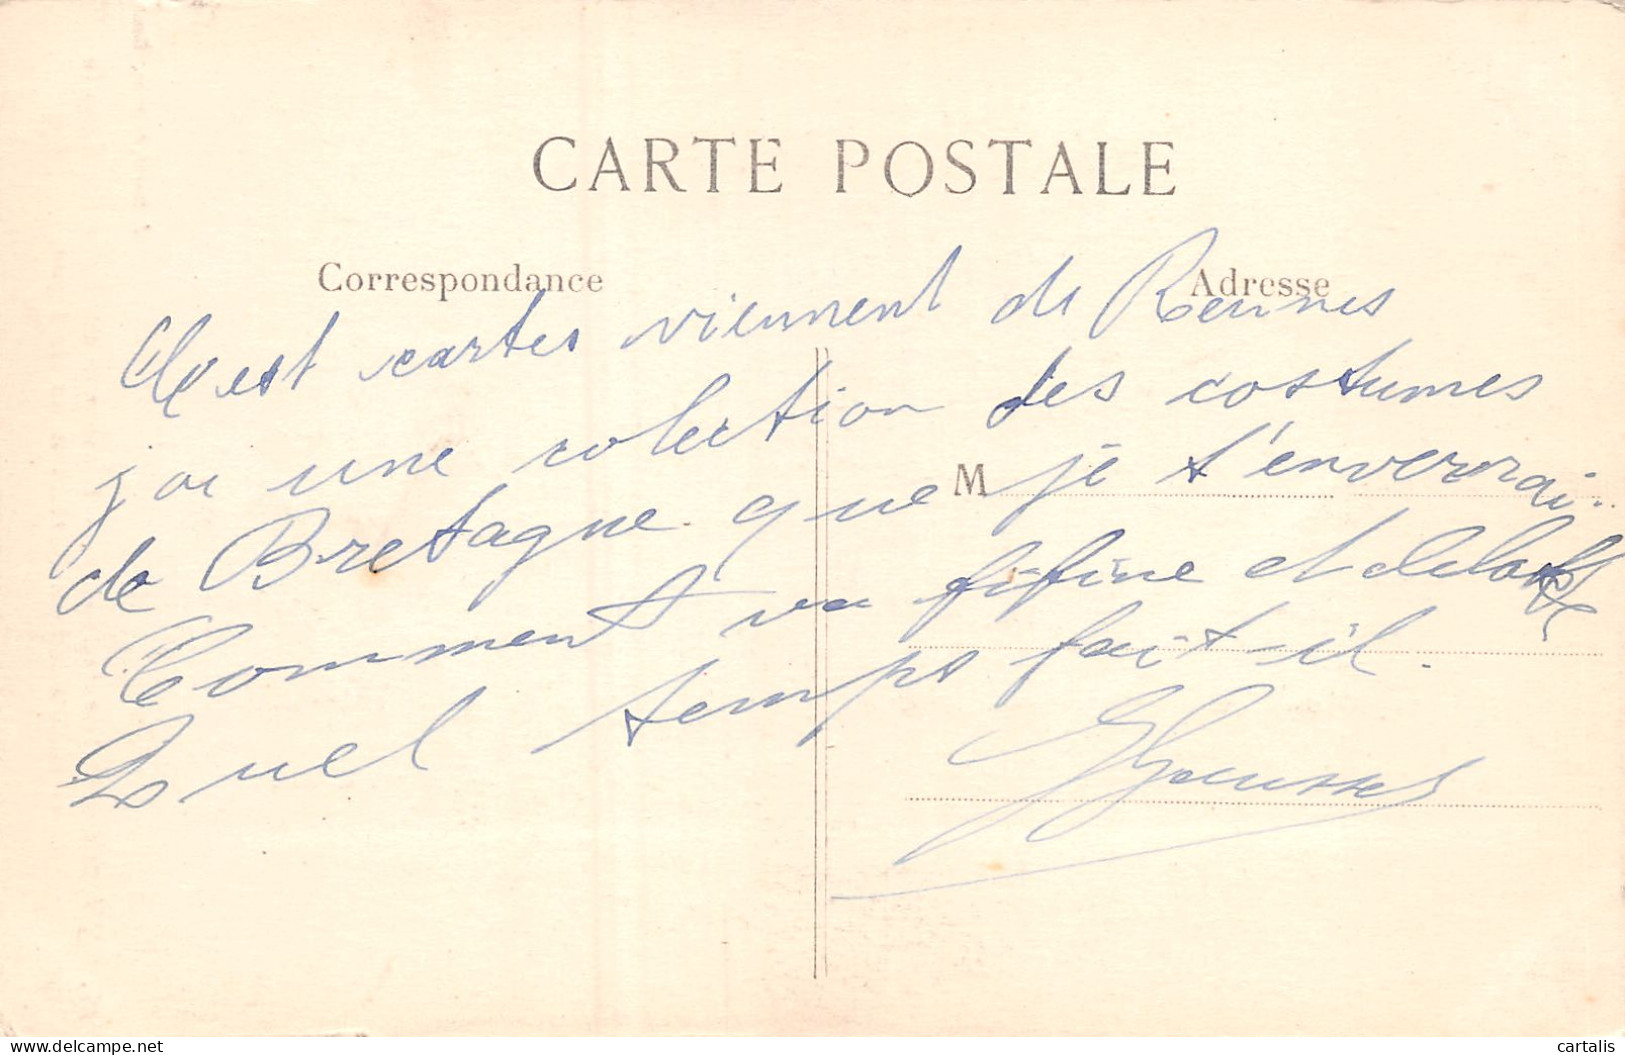 CARTE POSTALE
Correspondance
Adresse
C'est cartes viennent de Rennes
j'ai une colection des costumes
de Bretagne que je t'enverrai.
M
Comment va fifine et
Quel temps fait-il.
www.delcampe.net
cartalis